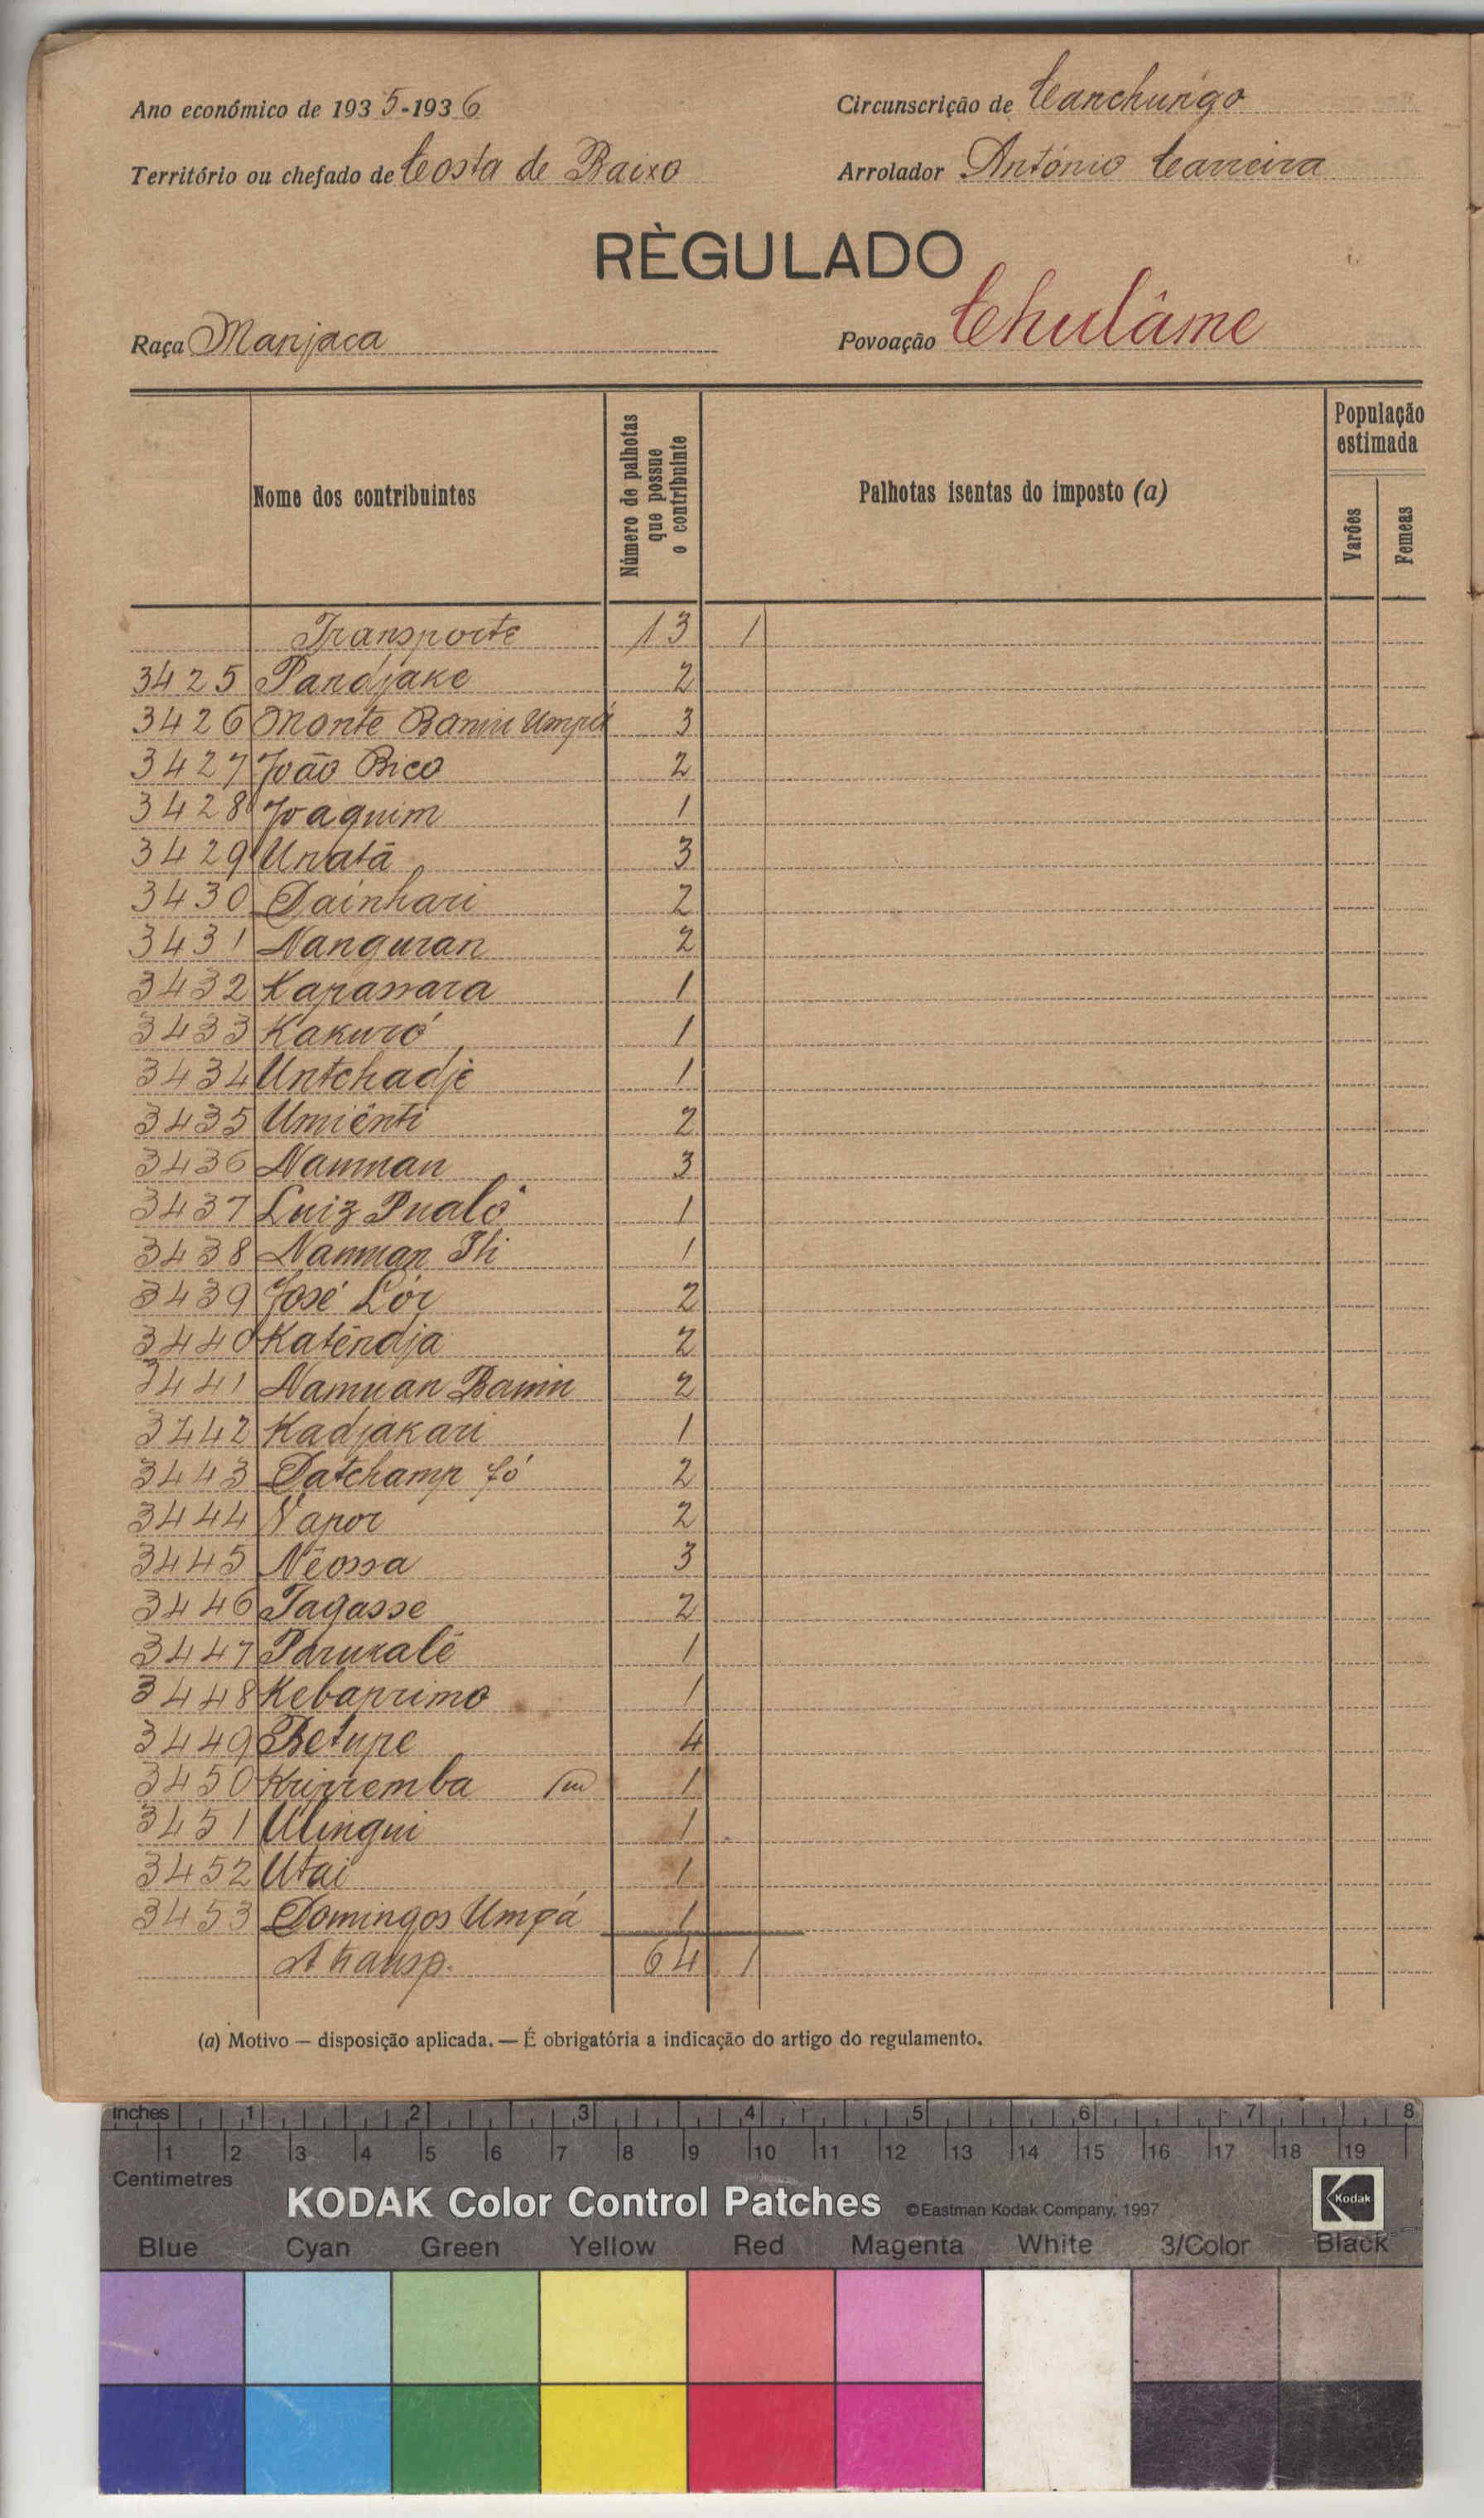 Ano económico de 1935-1936
Circunscrição de Canchungo
Território ou chefado de Costa de Baixo
Arrolador António Carreira
RÈGULADO
Raça Manjaca
Povoação Chulâme
Nome dos contribuintes
Número de palhotas que possue o contribuinte
Palhotas isentas do imposto (a)
População estimada
Varões
Femeas
Transporte 13 1
3425 Pandjake 2
3426 Monte Banin Umpá 3
3427 João Bico 2
3428 Joaquim 1
3429 Unatā 3
3430 Dainhari 2
3431 Nanguran 2
3432 Kapassara 1
3433 Kakuró 1
3434 Untchadje 1
3435 Umiênti 2
3436 Namuan 3
3437 Luiz Pualó 1
3438 Namuan 1
3439 José Lór 2
3440 Katêndja 2
3441 Namuan Banin 2
3442 Kadjakari 1
3443 Datchamp Jó 2
3444 Vapor 2
3445 Nêossa 3
3446 Tagasse 2
3447 Parukalê 1
3448 Kebaprimo 1
3449 Betupe 4
3450 1
3451 Ulingui 1
3452 Utai 1
3453 Domingos Umpá 1
A transp. 64 1
(a) Motivo — disposição aplicada. — É obrigatória a indicação do artigo do regulamento.
inches 1 2 3 4 5 6 7 8
1 2 3 4 5 6 7 8 9 10 11 12 13 14 15 16 17 18 19
Centimetres
KODAK Color Control Patches ©Eastman Kodak Company, 1997 Kodak
Blue Cyan Green Yellow Red Magenta White 3/Color Black